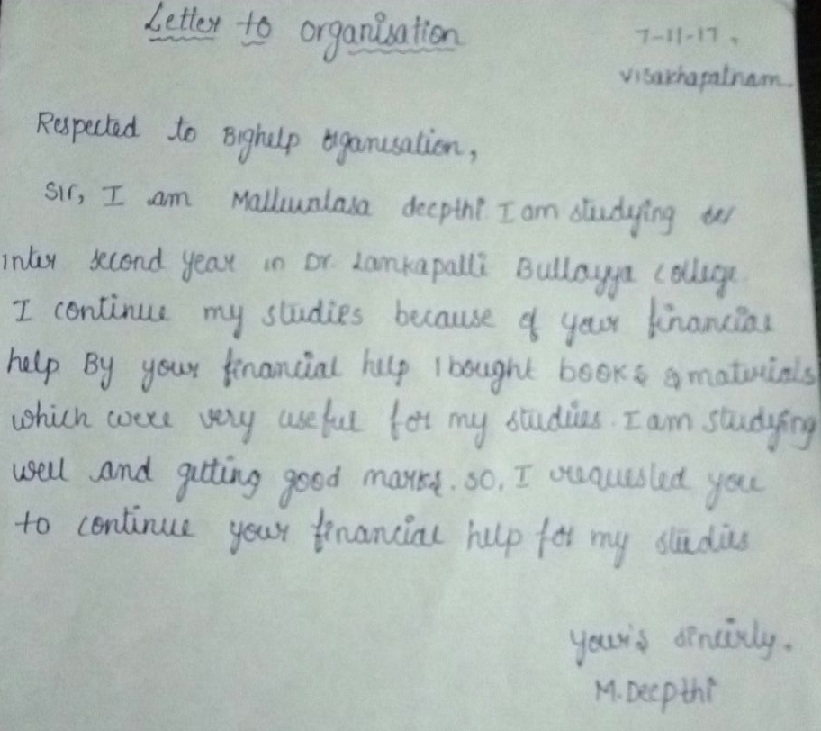 Letter to organisation
7-11-17.
visakhapatnam
Respected to Bighelp organisation,
Sir, I am Malluvalasa deepthi. I am studying
inter second year in Dr. Lankapalli Bullayya college
I continue my studies because of your financial
help By your financial help I bought books & materials
which were very useful for my studies. I am studying
well and getting good marks. so, I requested you
to continue your financial help for my studies
your's sincerly.
M. Deepthi